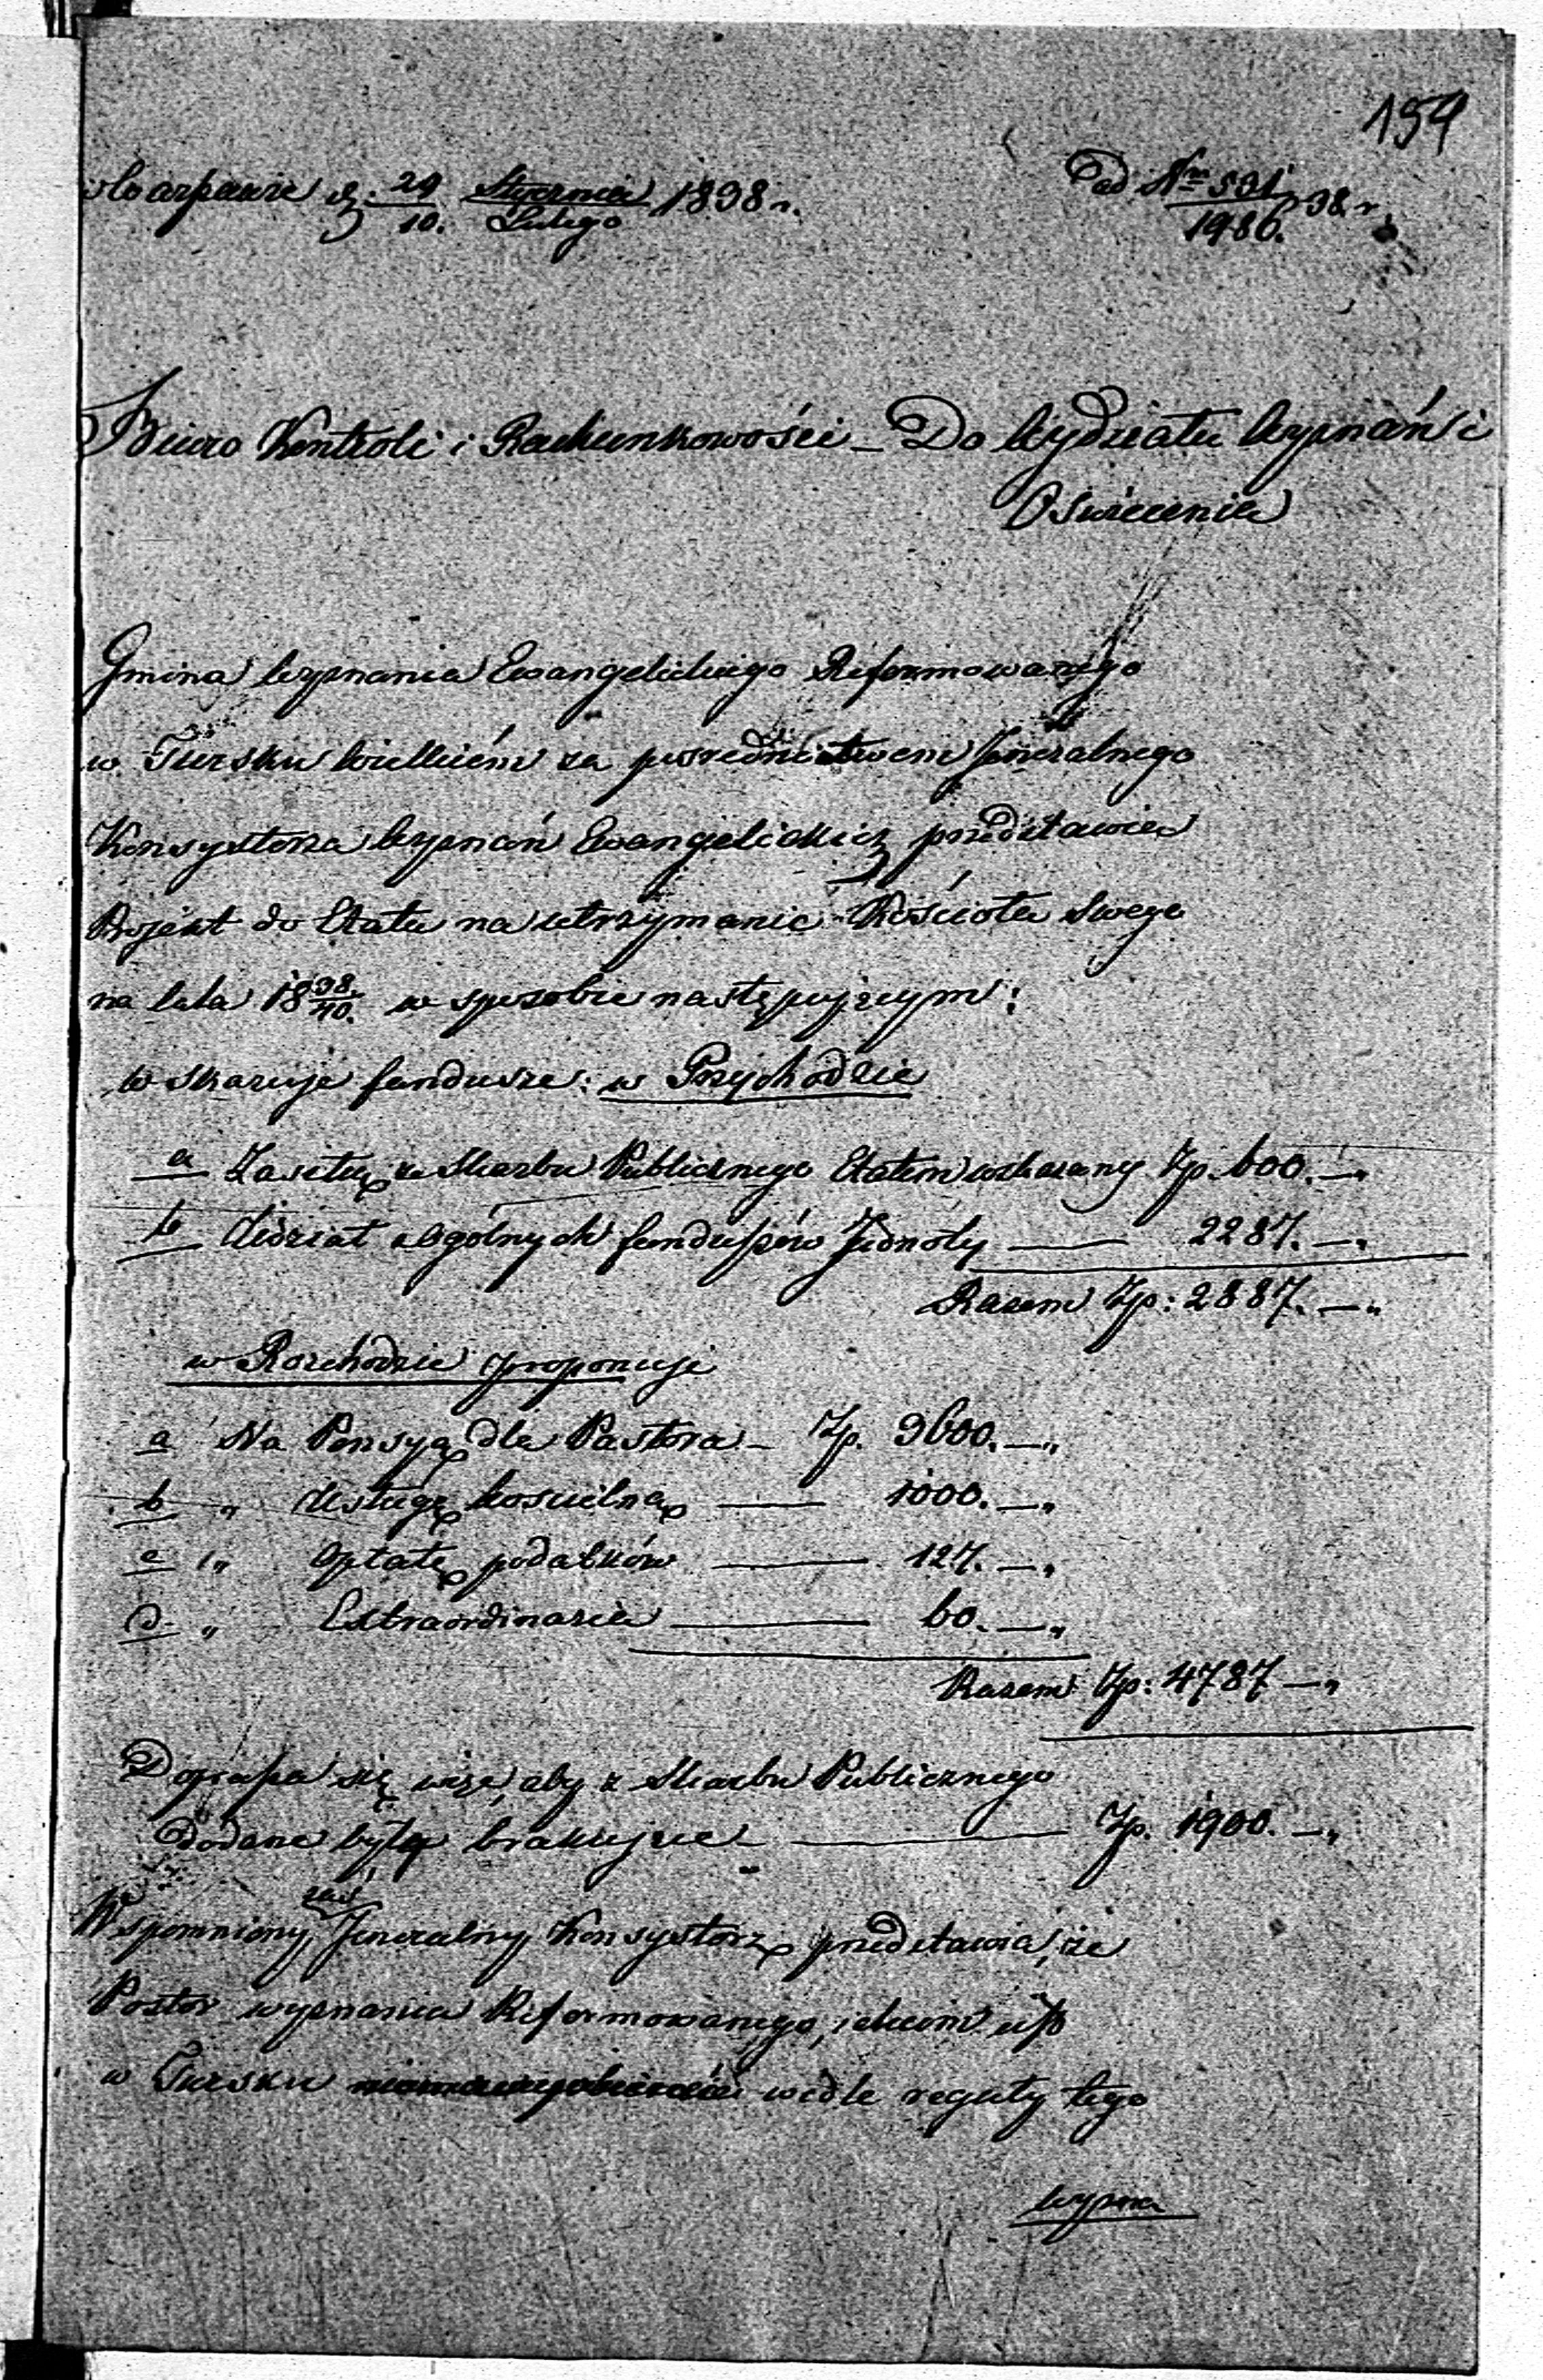 154
w Warszawie d. 29/10. Stycznia/Lutego 1838 r.
ad Nr 531/1986. 38 r.
Biuro Kontroli i Rachunkowości – Do Wydziału Wyznań i
Oświecenia
Gmina Wyznania Ewangelickiego Reformowanego
w Tursku Wielkiém za pośrednictwem Jeneralnego
Konsystorza Wyznań Ewangielickich przedstawia
Projekt do Etatu na utrzymanie Kościoła swego
na lata 18 38/40. w sposobie następującym:
Wskazuje fundusze: w Przychodzie
a Zasiłek ze Skarbu Publicznego Etatem wskazany Zp. 600. – „
b Udział z ogólnych funduszów Jednoty — 2287. – „
Razem Zp: 2887. – „
w Rozchodzie proponuje
a Na Pensyą dla Pastora – Zp. 3600. – „
b „ Usługę kościelną — 1000. – „
c „ Opłatę podatków — 127. – „
d „ Extraordinaria — 60. – „
Razem Zp: 4787 – „
Doprasza się więc, aby z Skarbu Publicznego
dodane były brakujące — Zp. 1900. – „
Wspomniony zaś Jeneralny Konsystorz przedstawia, że
Pastor wyznania Reformowanego, jakim jest
w Tursku wedle reguły tego
wyzna